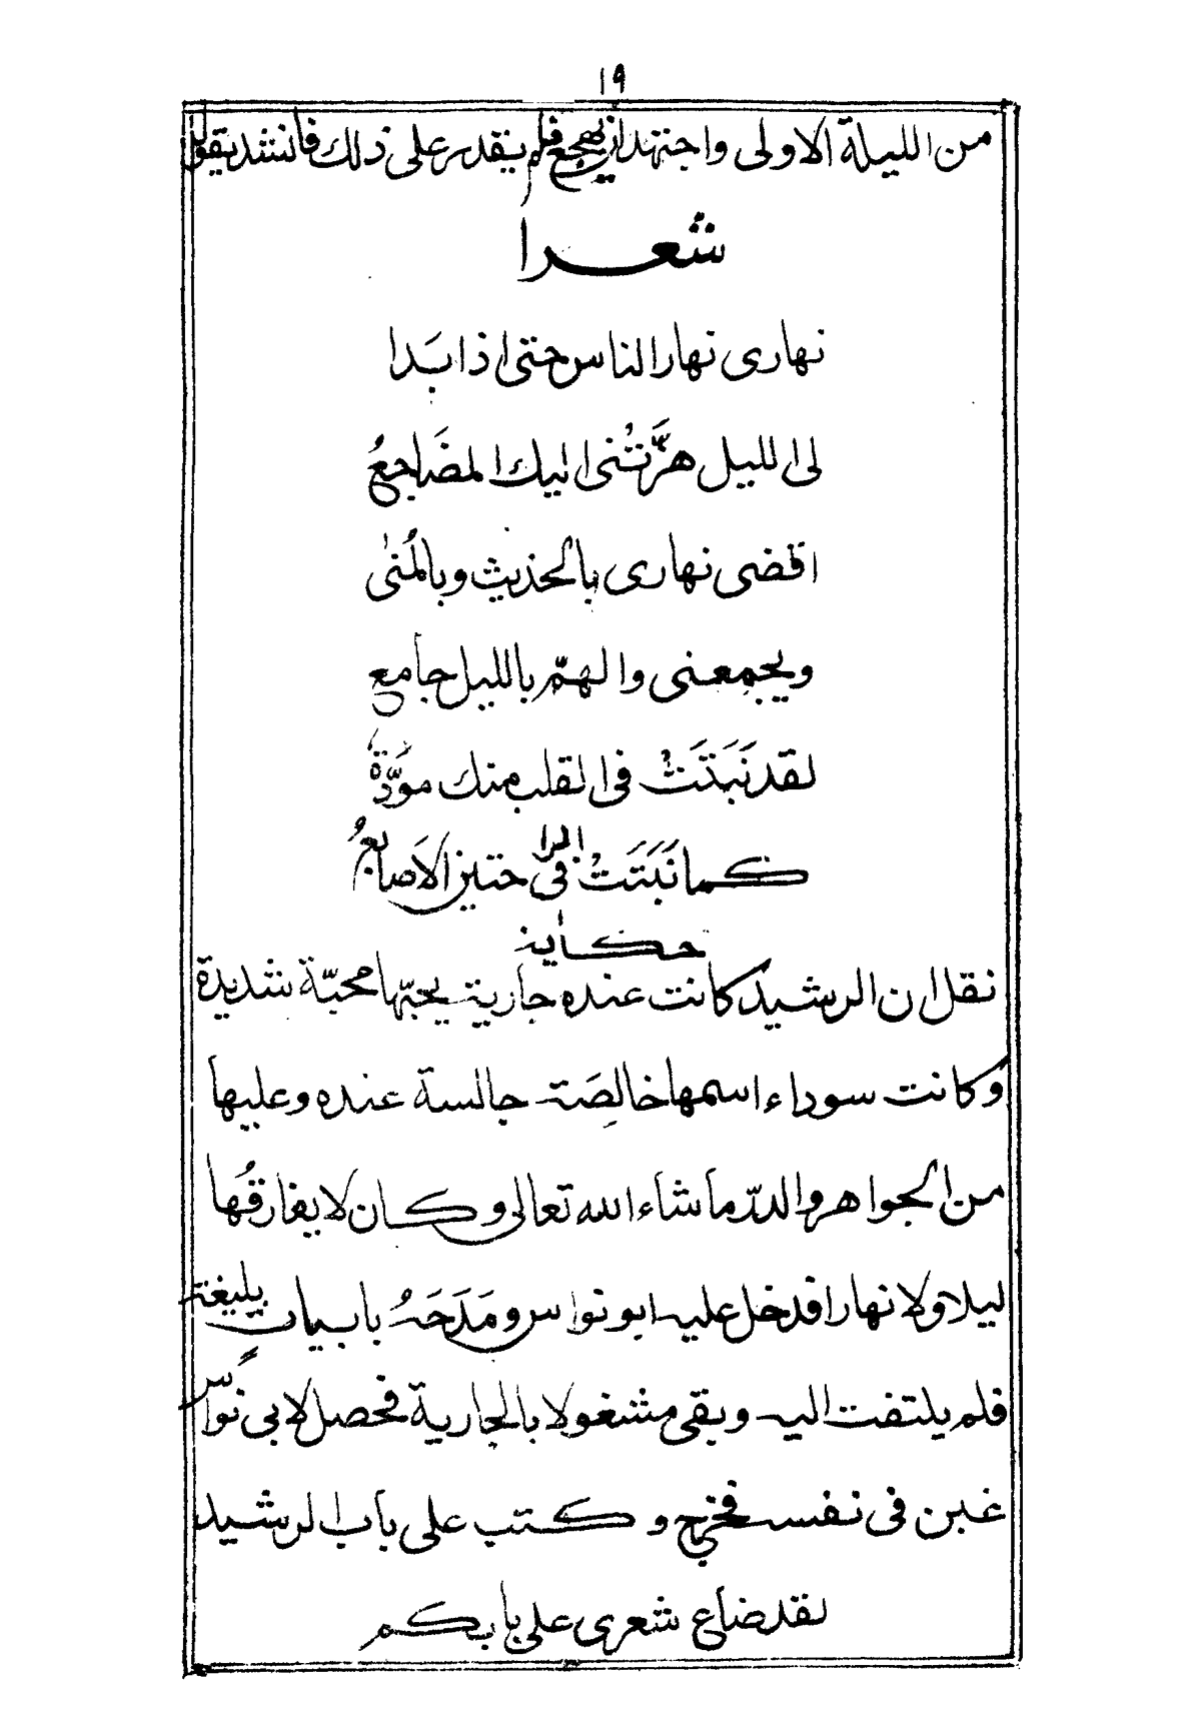 ١٩
من الليلة الاولى واجتهد ان يهجع فلم يقدر على ذلك فانشد يقول
شعرا
نهارى نهار الناس حتى اذا بَدا
لى الليل هزَّتْنى اليك المضَاجعُ
اقضى نهارى بالحذيث وبالمُنٰى
ويجمعنى والهمّ بالليل جامع
لقد نَبَتَتْ فى القلب منك موَدَّةٌ
كما نَبَتَتْ فى الراحتين الاَصابعُ
حكاية
نقل ان الرشيد كانت عنده جارية يحبّها محبّة شديدة
وكانت سوداء اسمها خالِصَة جالسة عنده وعليها
من الجواهر والدرّ ما شاء الله تعالى وكان لا يفارقُها
ليلا ولا نهارا قدخل عليه ابو نواس ومَدَحَهُ بابيات بليغة
فلم يلتفت اليه وبقى مشغولا بالجارية فحصل لابى نوّاس
غبن فى نفسه فخرج وكتب على باب الرشيد
لقد ضاع شعرى على بابكم